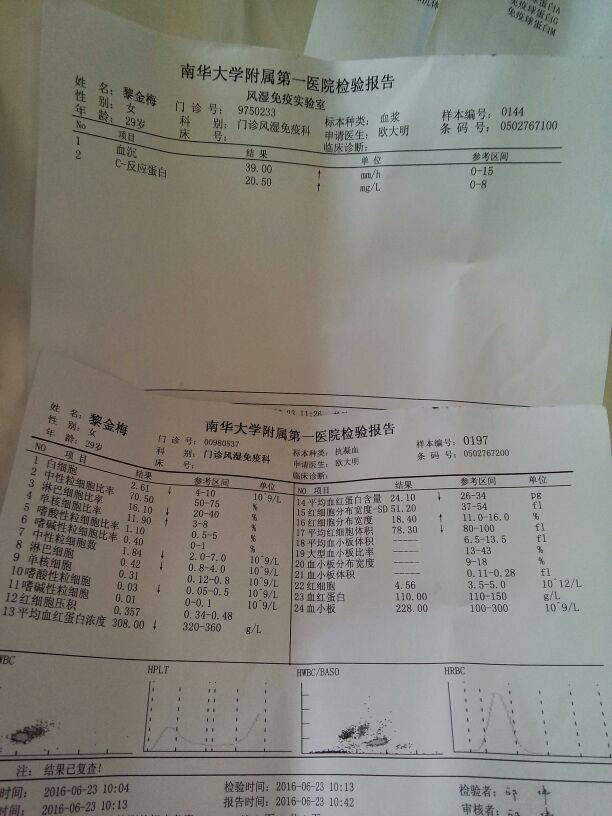 免疫球蛋白A
免疫球蛋白G
免疫球蛋白M
南华大学附属第一医院检验报告
风湿免疫实验室
姓 名: 黎金梅 门诊号: 9750233 标本种类: 血浆 样本编号: 0144
性 别: 女 科 别: 门诊风湿免疫科 申请医生: 欧大明 条码号: 0502767100
年 龄: 29岁 床 号: 临床诊断:
No 项目 结果 单位 参考区间
1 血沉 39.00 ↑ mm/h 0-15
2 C-反应蛋白 20.50 ↑ mg/L 0-8
南华大学附属第一医院检验报告
姓 名: 黎金梅 门诊号: 00980537 标本种类: 抗凝血 样本编号: 0197
性 别: 女 科 别: 门诊风湿免疫科 申请医生: 欧大明 条码号: 0502767200
年 龄: 29岁 床 号: 临床诊断:
NO 项目 结果 参考区间 单位
1 白细胞 2.61 ↓ 4-10 10^9/L
2 中性粒细胞比率 70.50 50-75 %
3 淋巴细胞比率 16.10 ↓ 20-40 %
4 单核细胞比率 11.90 ↑ 3-8 %
5 嗜酸性粒细胞比率 1.10 0.5-5 %
6 嗜碱性粒细胞比率 0.40 0-1 %
7 中性粒细胞数 1.84 ↓ 2.0-7.0 10^9/L
8 淋巴细胞 0.42 ↓ 0.8-4.0 10^9/L
9 单核细胞 0.31 0.12-0.8 10^9/L
10 嗜酸性粒细胞 0.03 ↓ 0.05-0.5 10^9/L
11 嗜碱性粒细胞 0.01 0-0.1 10^9/L
12 红细胞压积 0.357 0.34-0.48
13 平均血红蛋白浓度 308.00 ↓ 320-360 g/L
NO 项目 结果 参考区间 单位
14 平均血红蛋白含量 24.10 ↓ 26-34 pg
15 红细胞分布宽度-SD 51.20 37-54 fl
16 红细胞分布宽度 18.40 ↑ 11.0-16.0 %
17 平均红细胞体积 78.30 ↓ 80-100 fl
18 平均血小板体积 ----- 6.5-13.5 fl
19 大型血小板比率 ----- 13-43 %
20 血小板分布宽度 ----- 9-18 %
21 血小板体积 ----- 0.11-0.28 fl
22 红细胞 4.56 3.5-5.0 10^12/L
23 血红蛋白 110.00 110-150 g/L
24 血小板 228.00 100-300 10^9/L
WBC HPLT HWBC/BASO HRBC
注: 结果已复查!
2016-06-23 10:04 检验时间: 2016-06-23 10:13 检验者:
2016-06-23 10:13 报告时间: 2016-06-23 10:42 审核者: